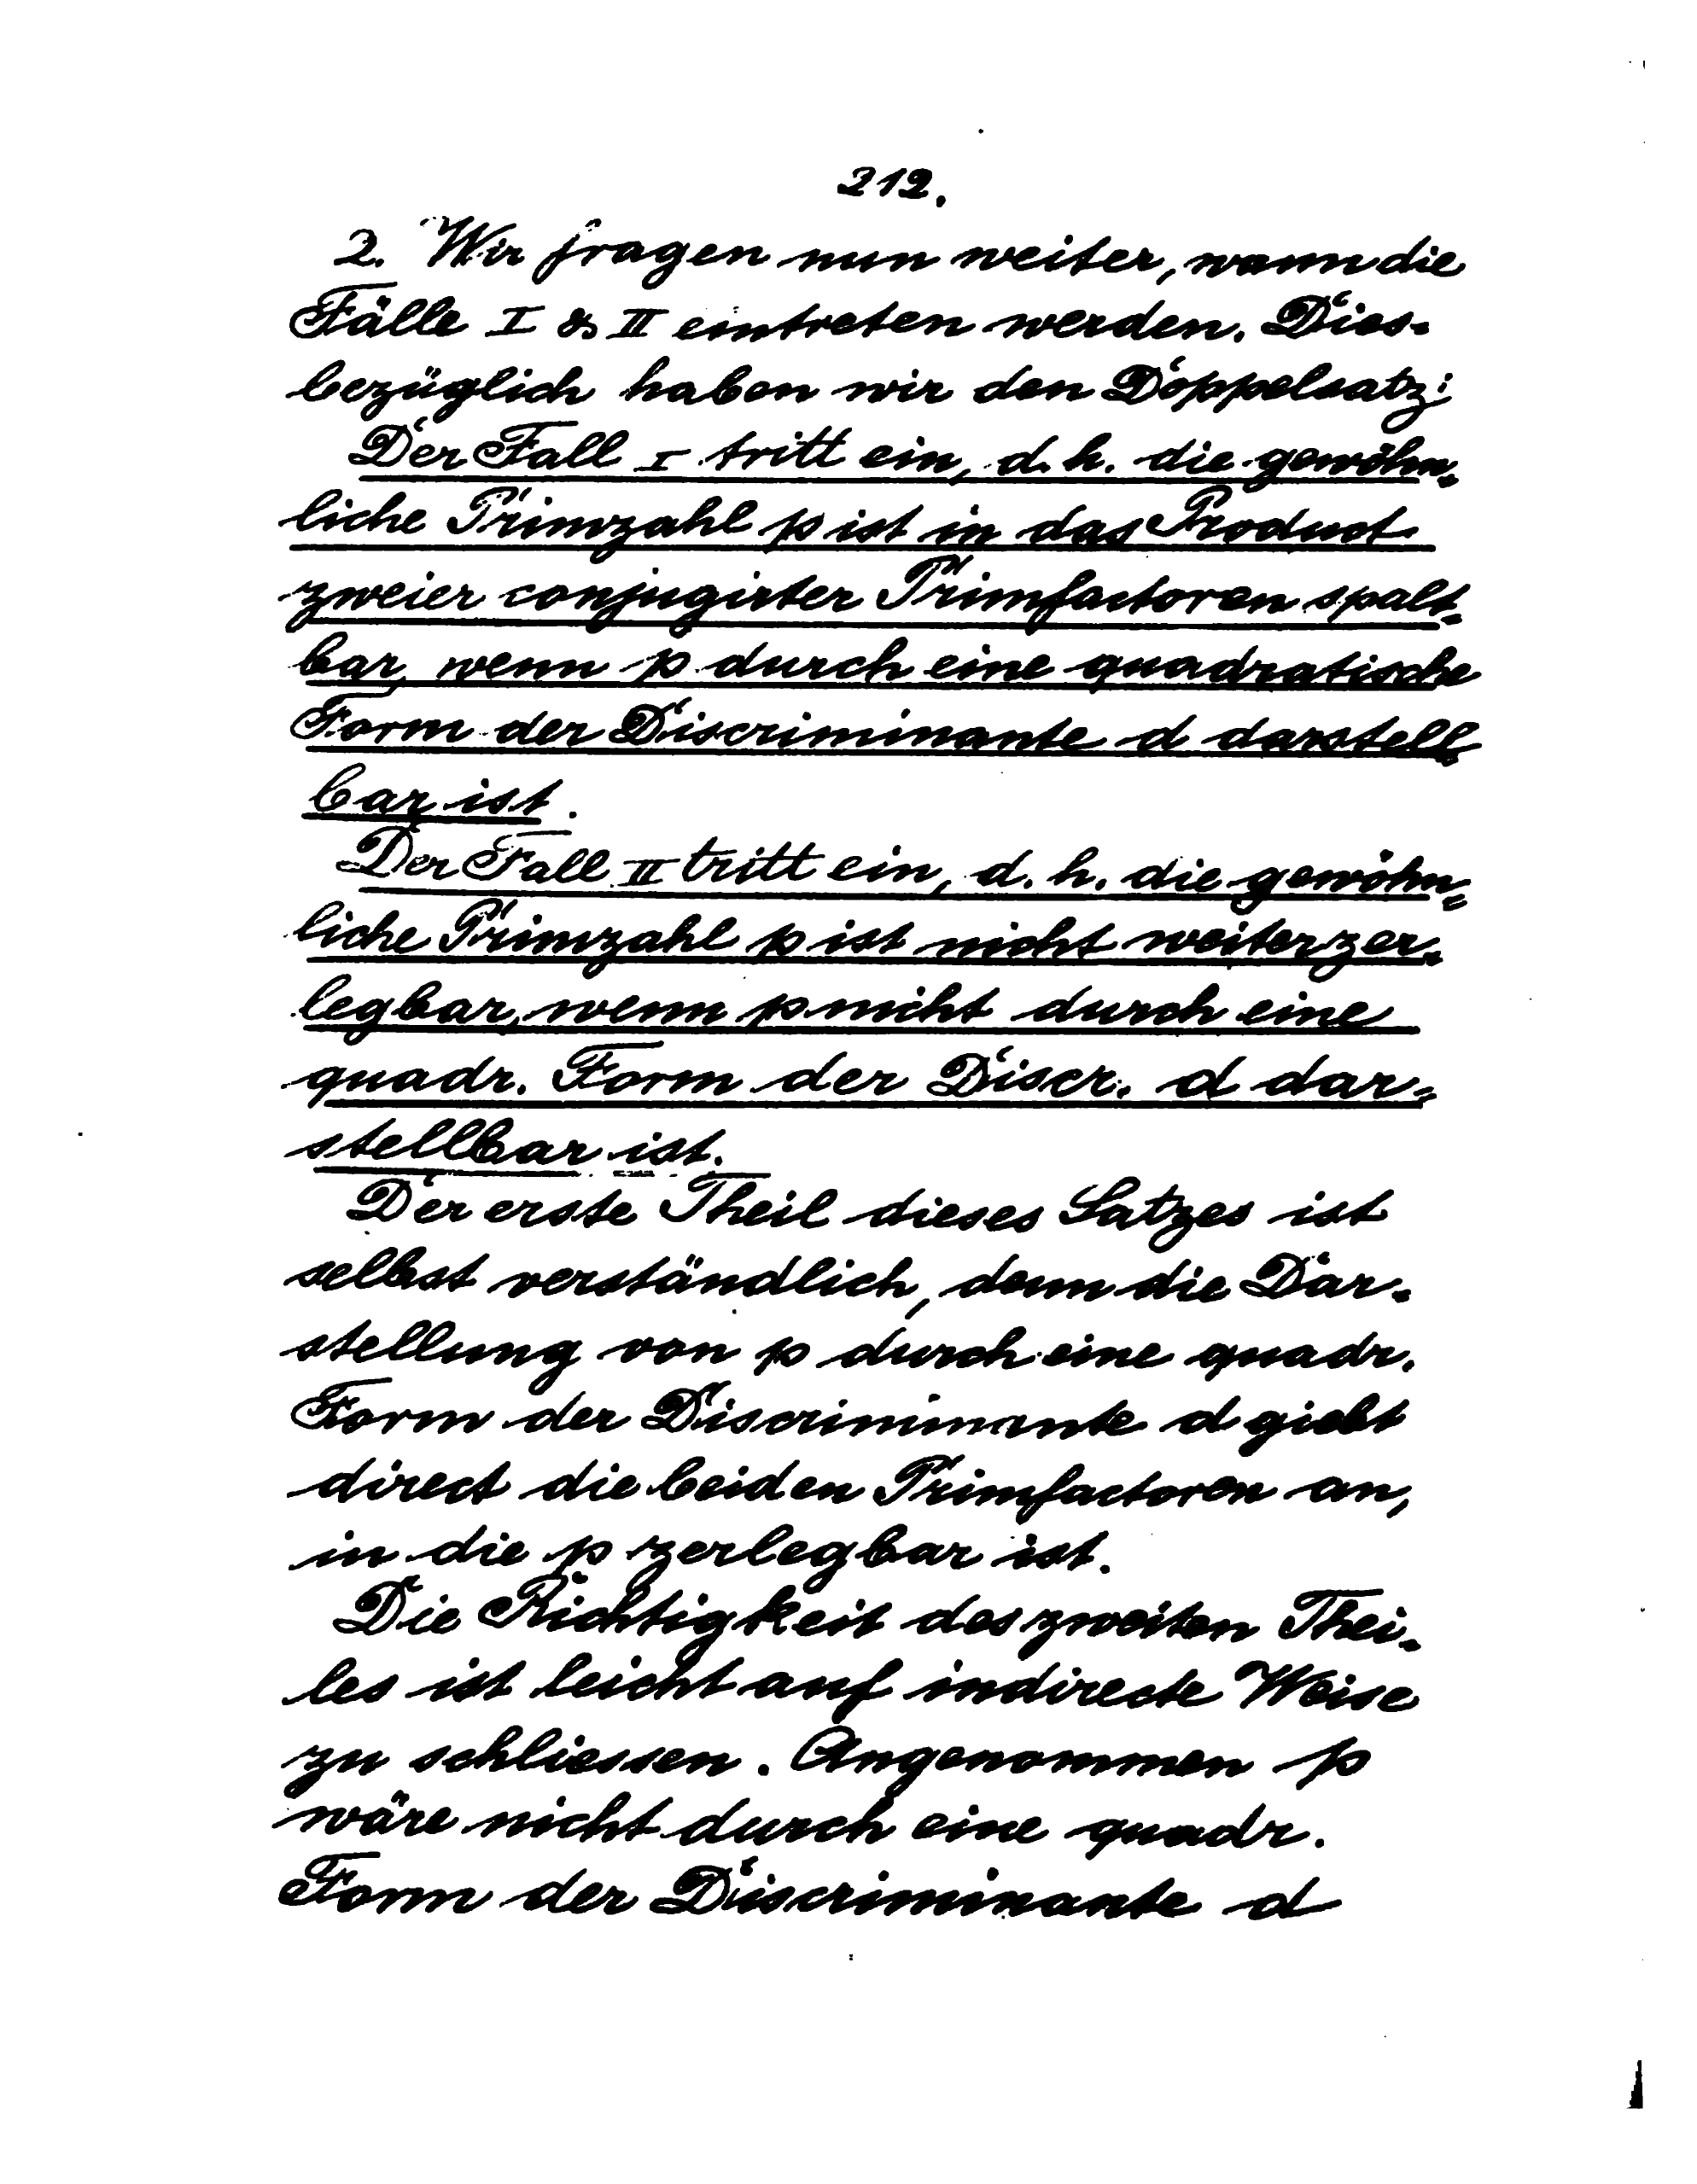 212.
2. Wir fragen nun weiter, wann die
Fälle I & II eintreten werden. Dies-
bezüglich haben wir den Doppelsatz:
Der Fall I tritt ein, d. h. die gewöhn-
liche Primzahl p ist in das Product
zweier conjugirter Primfactoren spalt-
bar, wenn p durch eine quadratische
Form der Discriminante d darstell-
bar ist.
Der Fall II tritt ein, d. h. die gewöhn-
liche Primzahl p ist nicht weiter zer-
legbar, wenn p nicht durch eine
quadr. Form der Discr. d dar-
stellbar ist.
Der erste Theil dieses Satzes ist
selbst verständlich, denn die Dar-
stellung von p durch eine quadr.
Form der Discriminante d giebt
direct die beiden Primfactoren an,
in die p zerlegbar ist.
Die Richtigkeit des zweiten Thei-
les ist leicht auf indirecte Weise
zu schliessen. Angenommen p
wäre nicht durch eine quadr.
Form der Discriminante d